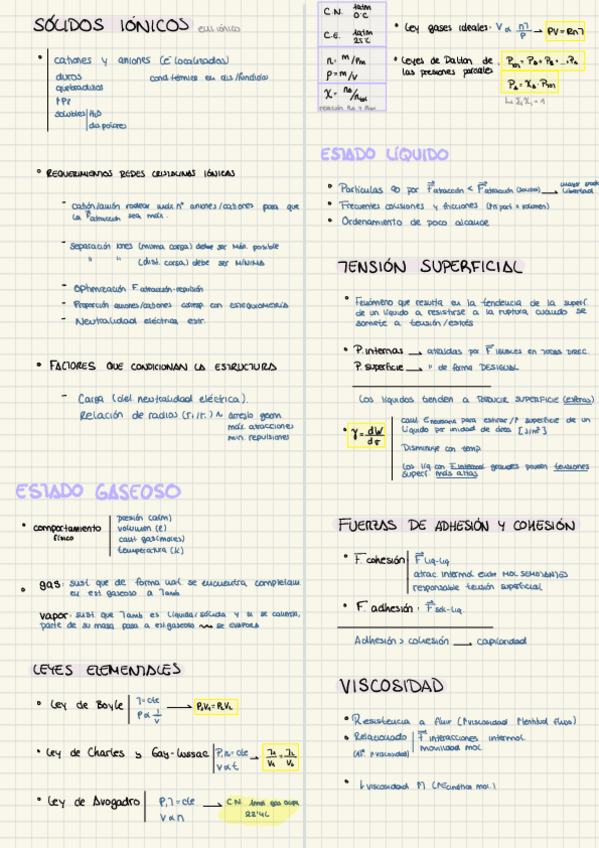 SÓLIDOS IÓNICOS
• cationes y aniones (e⁻ localizados)
duros
quebradizos
↑PF
solubles | H₂O
dis polares
• REQUERIMIENTOS REDES CRISTALINAS IÓNICAS
- catión/anión rodear máx nº aniones/cationes para que
la F atracción sea máx.
- separación iones (misma carga) debe ser máx. posible
" " (dist. carga) debe ser MÍNIMA
- Optimización F. atracción-repulsión
- Proporción aniones/cationes corresp. con ESTEQUIOMETRÍA
- Neutralidad eléctrica estr.
• FACTORES QUE CONDICIONAN LA ESTRUCTURA
- Carga (del. neutralidad eléctrica).
Relación de radios
arreglo geom.
máx. atracciones
mín. repulsiones
ESTADO GASEOSO
• comportamiento físico
presión (atm)
volumen (l)
cant gas (moles)
temperatura (K)
• gas: sust que de forma nat se encuentra completam
en est gaseoso a Tamb
vapor: sust que Tamb es líquida/sólida y si se calienta,
parte de su masa pasa a est gaseoso → se EVAPORA
LEYES ELEMENTALES
• Ley de Boyle | T = cte
P ∝ 1/V
→ P₁V₁ = P₂V₂
• Ley de Charles y Gay-Lussac | P, n = cte
V ∝ t
→ T₁/V₁ = T₂/V₂
• Ley de Avogadro | P, T = cte
V ∝ n
→ C.N. 1mol gas ocupa
22'4L
C.N. 1atm
0°C
C.E. 1atm
25°C
n = m/Pm
ρ = m/V
• Ley gases ideales: V ∝ nT/P → PV = RnT
• Leyes de Dalton de
las presiones parciales
ESTADO LÍQUIDO
• Frecuentes colisiones y fricciones
• Ordenamiento de poco alcance
TENSIÓN SUPERFICIAL
• Fenómeno que resulta en la tendencia de la superf.
de un líquido a resistirse a la ruptura cuando se
somete a tensión/estrés
• P. internas → atraídas por F IGUALES en TODAS DIRECC.
P. superficie → " de forma DESIGUAL
Los líquidos tienden a REDUCIR SUPERFICIE (esferas)
• γ = dW/dσ
cant E necesaria para estirar/↑ superficie de un
líquido por unidad de área [J/m²]
Disminuye con temp
Los líq con F intermol grandes poseen tensiones
superf. más altas
FUERZAS DE ADHESIÓN Y COHESIÓN
• F. cohesión | F líq-líq
atrac. intermol entre MOL SEMEJANTES
responsable tensión superficial
• F. adhesión: F sól-líq
Adhesión > cohesión → capilaridad
VISCOSIDAD
• Resistencia a fluir (↑viscosidad ↑lentitud flujo)
• Relacionado | F interacciones intermol.
movilidad mol.